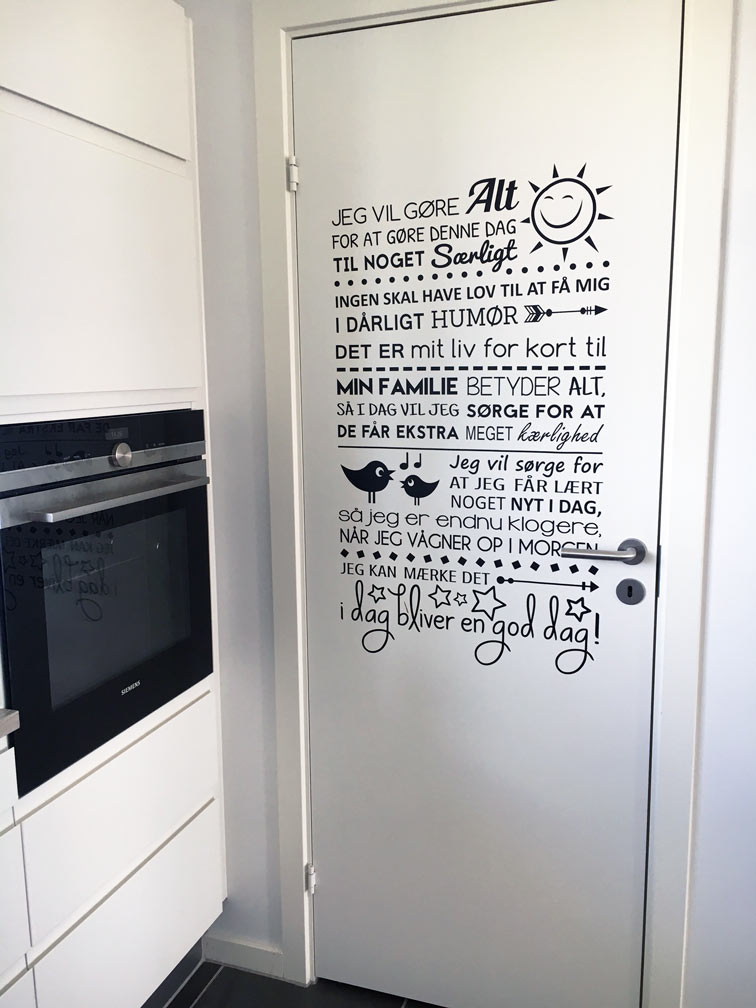 JEG VIL GØRE Alt
FOR AT GØRE DENNE DAG
TIL NOGET Særligt
INGEN SKAL HAVE LOV TIL AT FÅ MIG
I DÅRLIGT HUMØR
DET ER mit liv for kort til
MIN FAMILIE BETYDER ALT,
SÅ I DAG VIL JEG SØRGE FOR AT
DE FÅR EKSTRA MEGET kærlighed
Jeg vil sørge for
AT JEG FÅR LÆRT
NOGET NYT I DAG,
så jeg er endnu klogere,
NÅR JEG VÅGNER OP I MORGEN
JEG KAN MÆRKE DET
i dag bliver en god dag!
SIEMENS